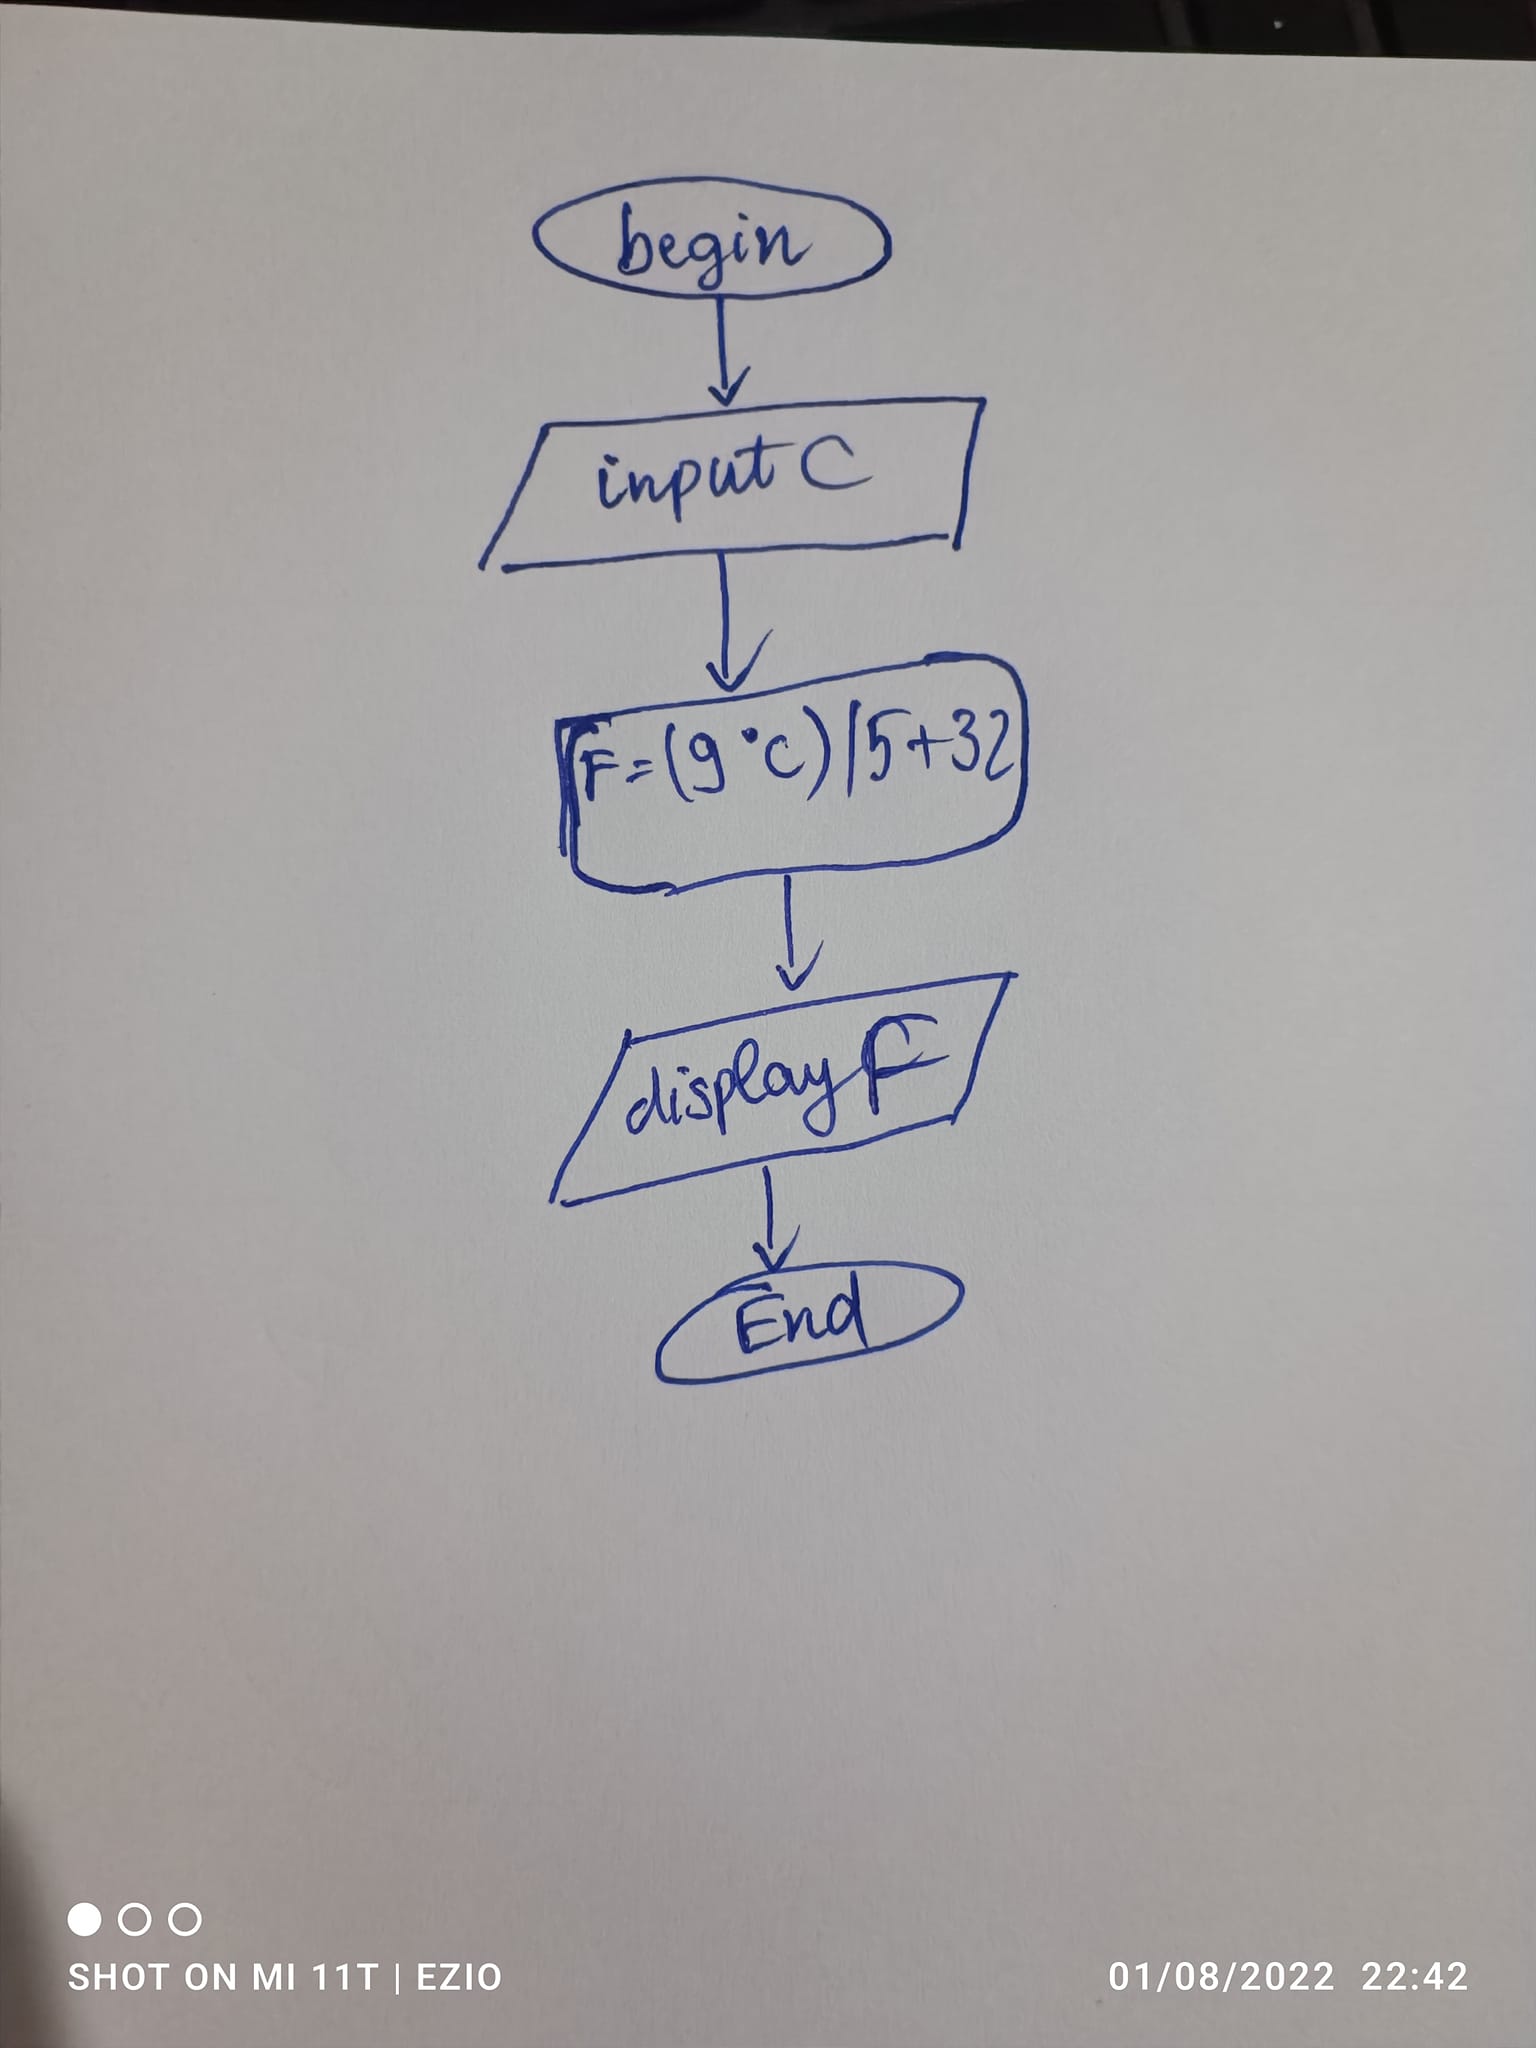 begin
input C
F=(9°c)/5+32
display F
End
SHOT ON MI 11T | EZIO
01/08/2022 22:42